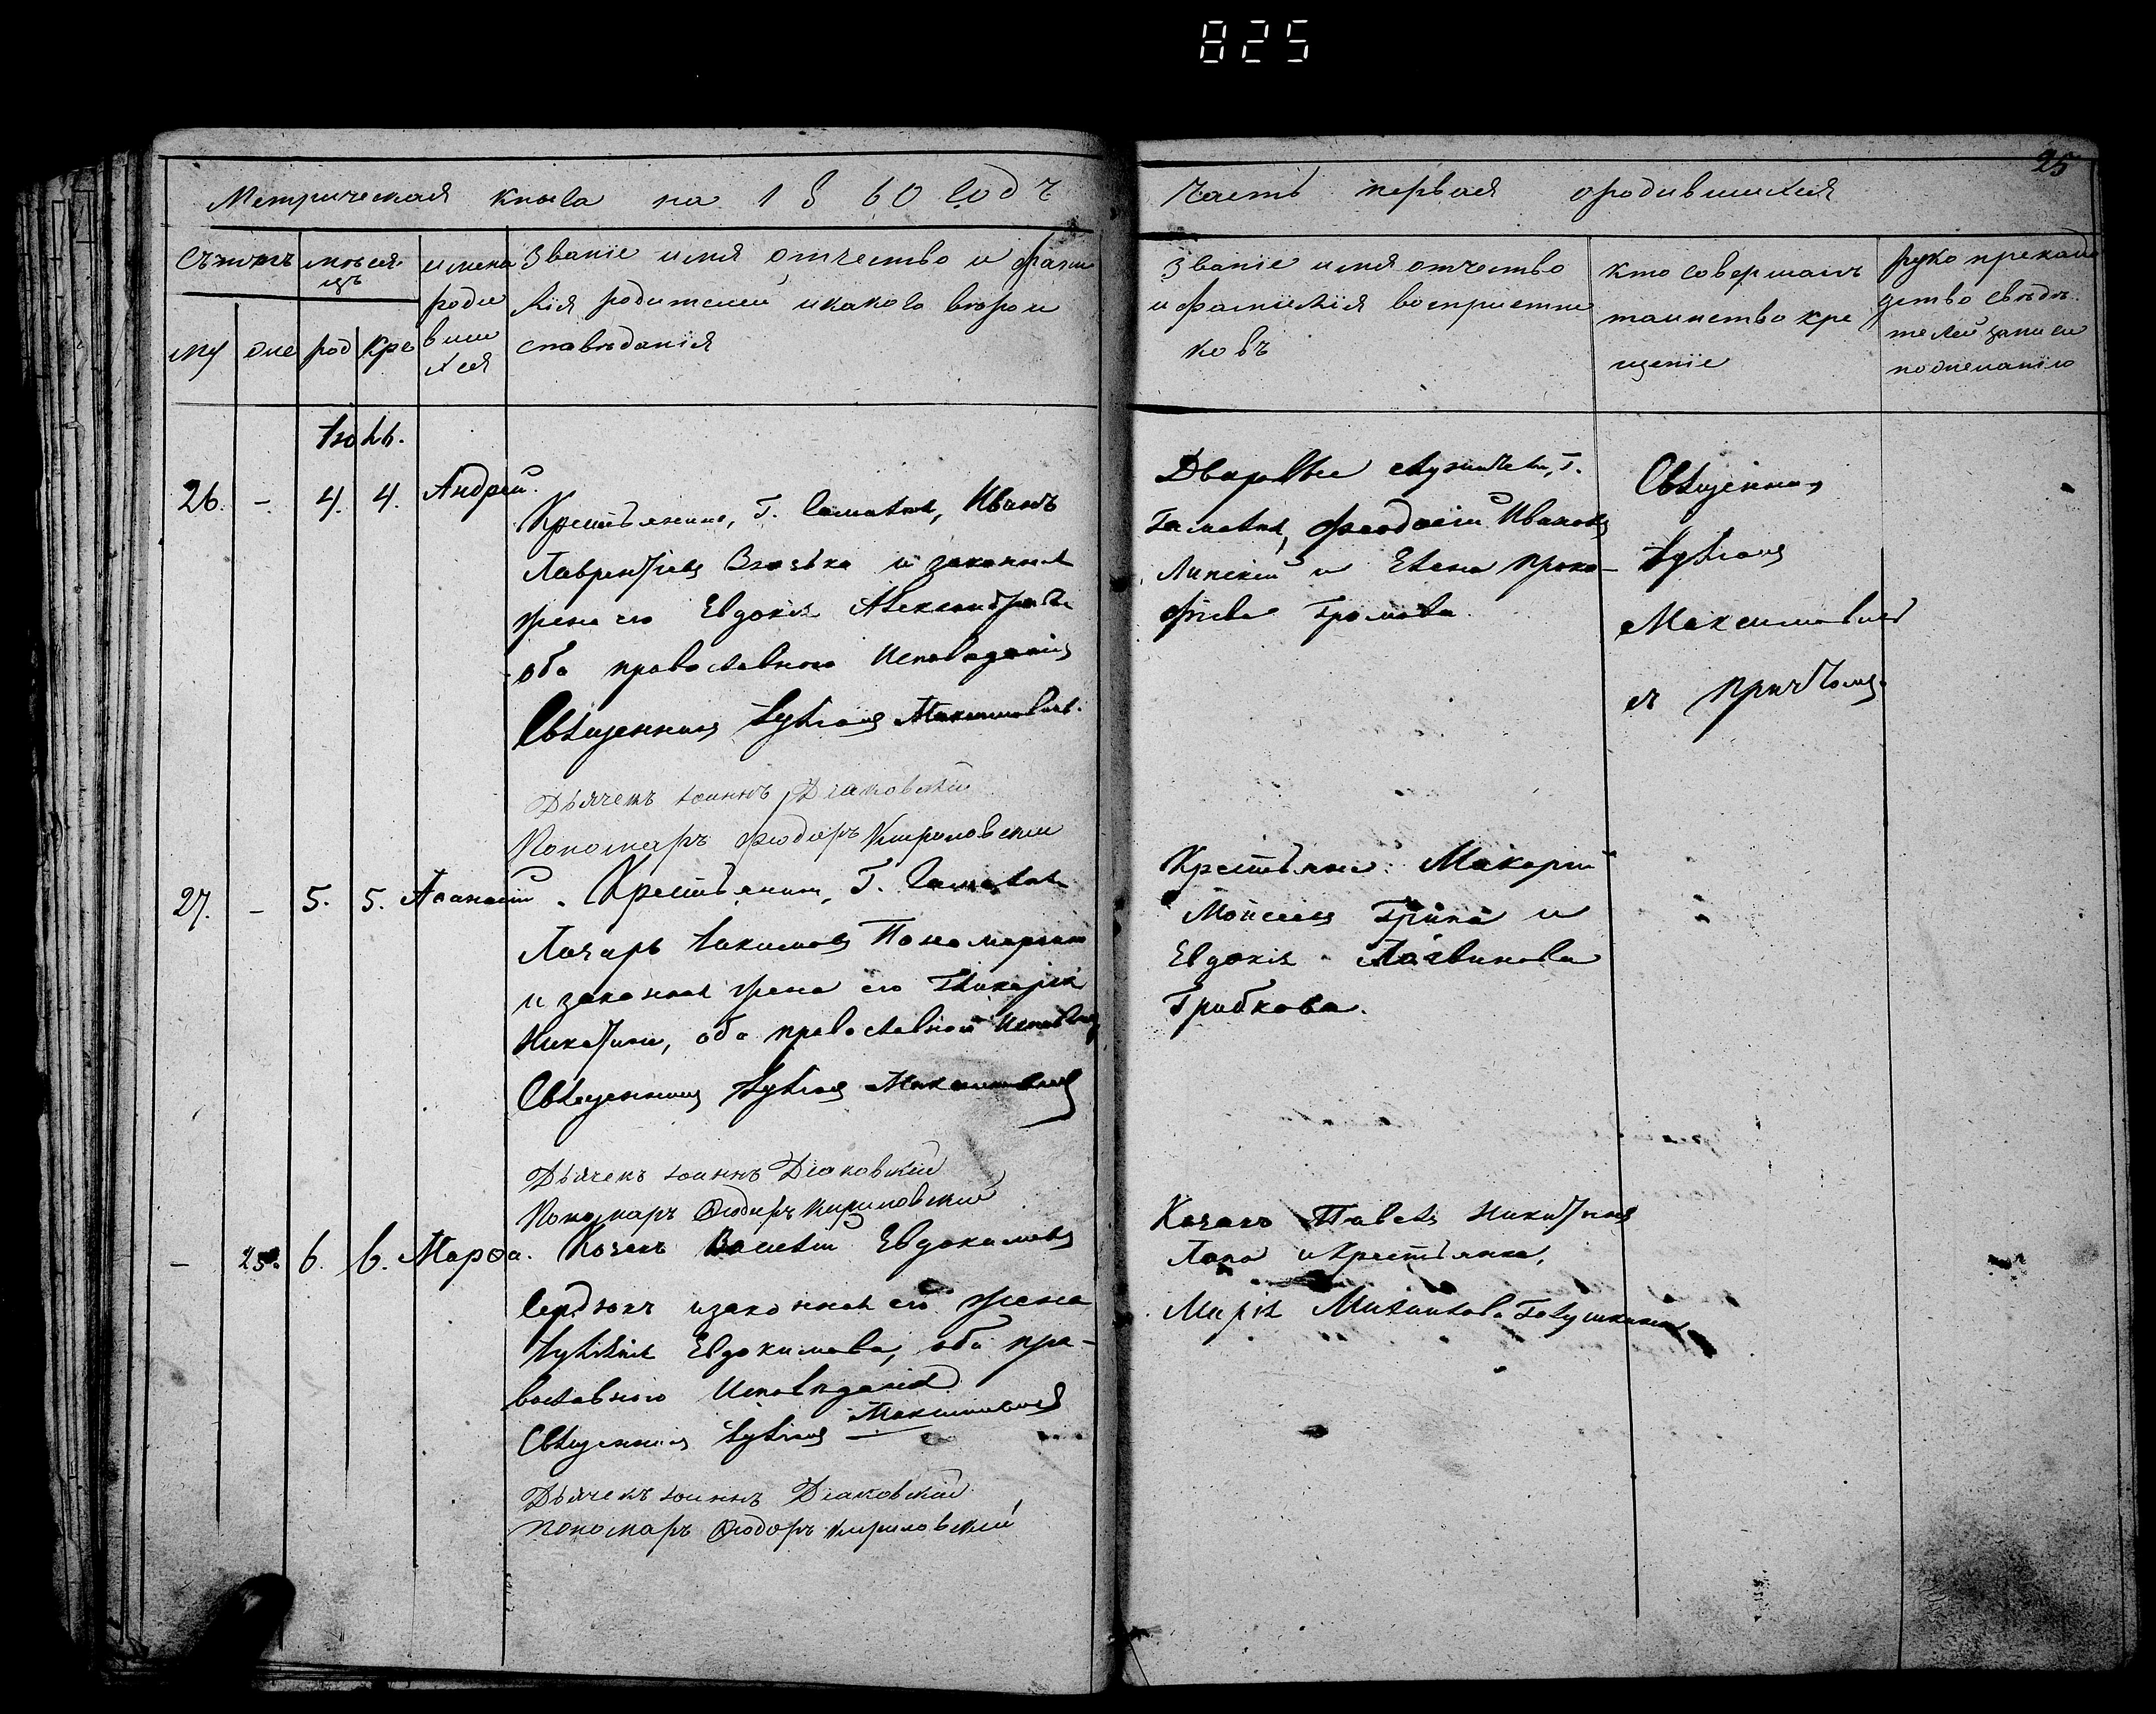 825
25
Метрическая книга на 1860 годъ
Часть первая ородившихся
Счетъ
мѣся
цъ
имена
роди
вших
ся
Званіе имя отчество и фами
лія родителей икакого вѣроис
повѣданія
му
жс
род
кре
Званіе имя отчество
и фамилія воспріемни
ковъ
кто совершалъ
таинство кре
щеніе
руко
дство свѣдѣ
телей записи
Іюль.
26. - 4. 4. Андрей.
Крестьянинъ, Г. Иванъ
Лаврентіевъ и законная
жена его Евдокія Александрова
оба православного исповѣданія
Священникъ Іуліанъ Максимовичъ.
Дьячекъ Іоаннъ Діаковскій
Пономаръ Фіодоръ Кириловскій
Дворовые служители, Г.
Феодосій Ивановъ
Липскій и Елена Проко-
фіева Громова
Священникъ
Іуліанъ
Максимовичъ
съ причтомъ.
27. - 5. 5. Аѳанасій. Крестьянинъ, Г.
Лазарь Іакимовъ
и законная жена его Гликерія
Никитина, оба православного исповѣд
Священникъ Іуліанъ Максимовичъ
Дьячекъ Іоаннъ Діаковскій
Пономаръ Фіодоръ Кириловскій
Крестьяне Макарій
Моисеевъ Грипа и
Евдокія Логвинова
Грибкова.
- 25. 6. 6. Марѳа. Козакъ Василій Евдокимовъ
Сердюкъ изаконная его жена
Іуліанія Евдокимова, оба пра-
вославного исповѣданія
Священникъ Іуліанъ Максимовичъ
Дьячекъ Іоаннъ Діаковскій
пономаръ Фіодоръ Кириловскій
Козакъ Павелъ Никитинъ
Лапа икрестьянка,
Марія Михаилова